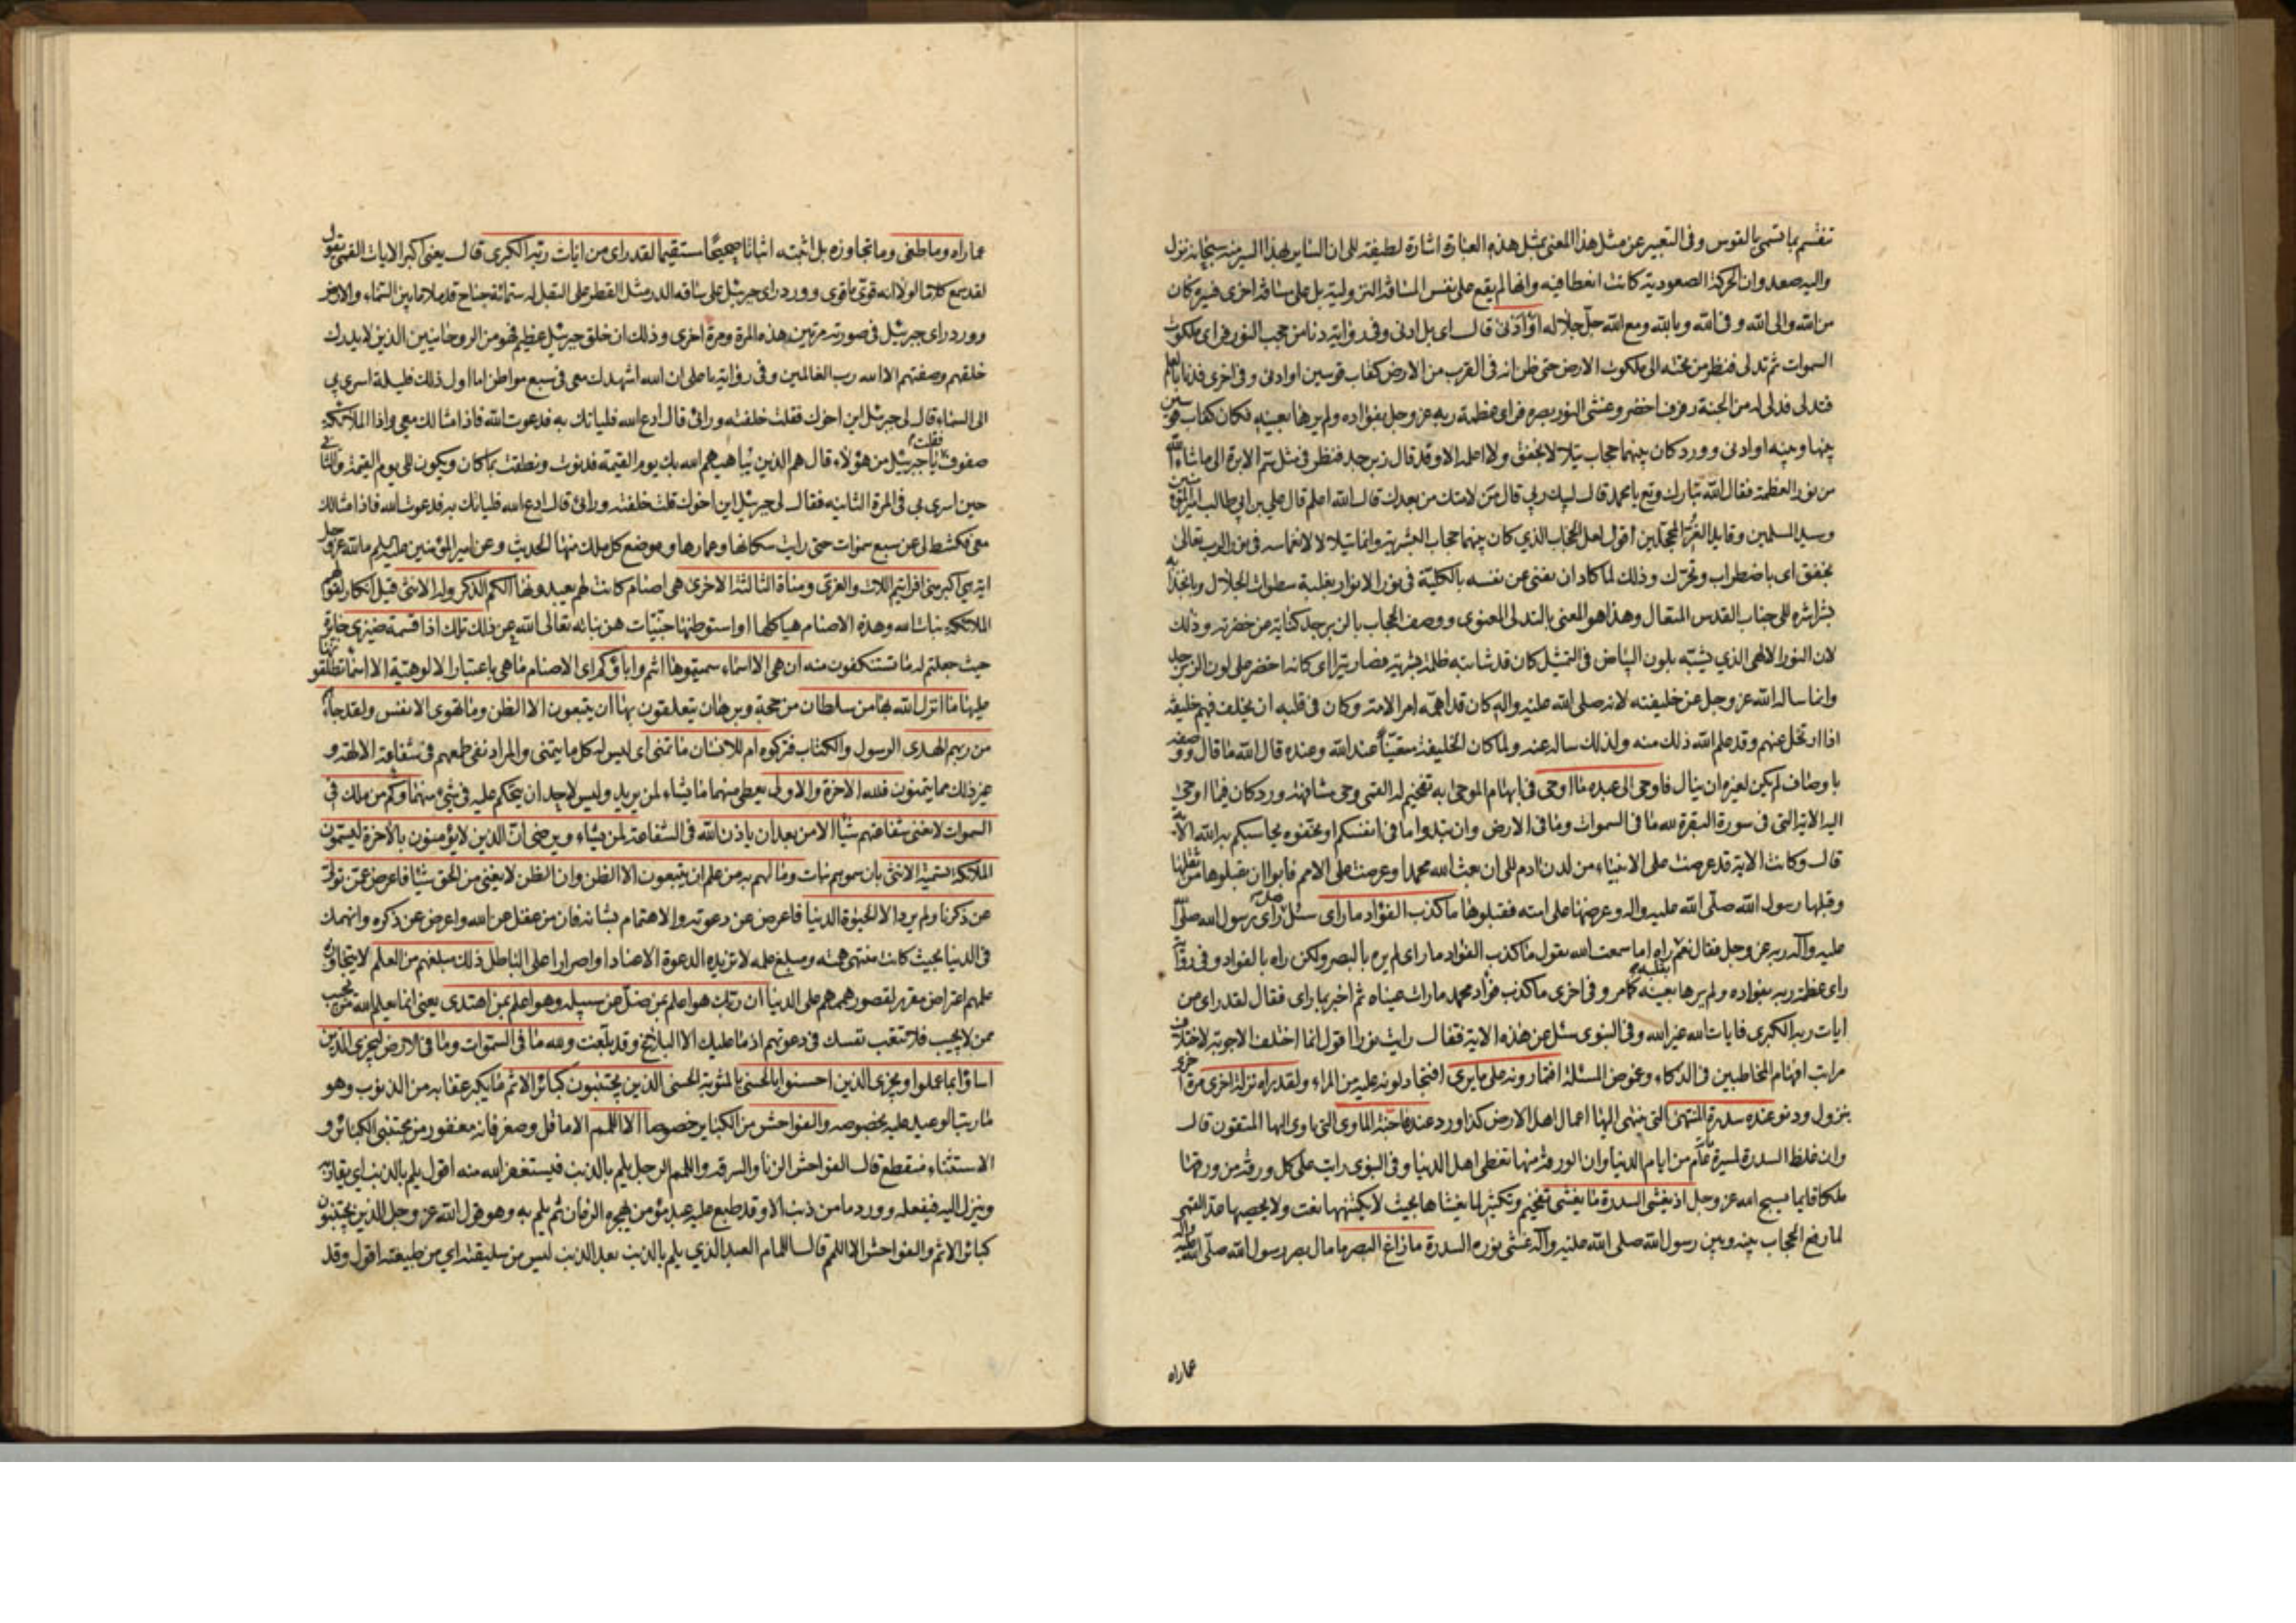 تنقسم بما تسمى بالقوس وفى التعبير عن مثل هذا المعنى بمثل هذه العبارة اشارة لطيفة الى ان الساير بهذا السير منه سبحانه نزل
واليه صعد وان الحركة الصعودية كانت انعطافية وانها لم يقع على نفس المسافة النزولية بل على مسافة اخرى فسيره كان
من الله والى الله وفى الله وبالله ومع الله جل جلاله او ادنى قال اى بل ادنى وفى رواية دنا من حجب النور فراى ملكوت
السموات ثم تدلى فنظر من تحته الى ملكوت الارض حتى ظن انه فى القرب من الارض كقاب قوسين او ادنى وفى اخرى فدنا بالعلم
فتدلى فدلى له من الجنة رفرف اخضر وغشى النور بصره فراى عظمة ربه عز وجل بفؤاده ولم يرها بعينه فكان كقاب قوسين
بينها وبينه او ادنى وورد كان بينهما حجاب يتلالا بخفق ولا اعلمه الا وقد قال زبرجد فنظر فى مثل سم الابرة الى ما شاء الله
من نور العظمة فقال الله تبارك وتع يا محمد قال لبيك ربى قال من لامتك من بعدك قال الله اعلم قال على بن ابي طالب امير المؤمنين
وسيد المسلمين وقايد الغر المحجلين اقول لعل الحجاب الذي كان بينهما حجاب البشرية وانما يتلالا لانغماسه فى نور الرب تعالى
بخفق اى باضطراب وتحرك وذلك لما كاد ان يفنى عن نفسه بالكلية فى نور الانوار بغلبة سطوات الجلال وبانجذابه
بشراشره الى جناب القدس المتعال وهذا هو المعنى بالتدلى المعنوى ووصف الحجاب بالزبرجد كناية عن خضرته وذلك
لان النور الالهى الذي يشبه بلون البياض فى التمثيل كان قد شابته ظلمة بشرية فصار يتراى كانه اخضر على لون الزبرجد
وانما ساله الله عز وجل عن خليفته لانه صلى الله عليه واله كان قد اهمه امر الامة وكان فى قلبه ان يخلف فيهم خليفة
اذا ارتحل عنهم وقد علم الله ذلك منه ولذلك ساله عنه ولما كان الخليفة متعينا عند الله وعنده قال الله ما قال ووصفه
باوصاف لم يكن لغيره ان ينال فاوحى الى عبده ما اوحى فى ابهام الموحى به تفخيم له القمى وحى مشافهة وورد كان فيما اوحى
اليه الاية التى فى سورة البقرة لله ما فى السموات وما فى الارض وان تبدوا ما فى انفسكم او تخفوه يحاسبكم به الله الاية
قال وكانت الاية قد عرضت على الانبياء من لدن ادم الى ان بعث الله محمدا وعرضت على الامم فابوا ان يقبلوها من ثقلها
وقبلها رسول الله صلى الله عليه واله وعرضها على امته فقبلوها ما كذب الفؤاد ما راى سئل هل راى رسول الله صلى الله
عليه واله ربه عز وجل فقال نعم بقلبه راه اما سمعت الله يقول ما كذب الفؤاد ما راى لم يره بالبصر ولكن راه بالفؤاد وفى رواية
راى عظمة ربه بفؤاده ولم يرها بعينه كما مر وفى اخرى ما كذب فؤاد محمد ما رات عيناه ثم اخبر بما راى فقال لقد راى من
ايات ربه الكبرى فايات الله غير الله وفى النبوى سئل عن هذه الاية فقال رايت نورا اقول انما اختلف الاجوبة لاختلاف
مراتب افهام المخاطبين فى الذكاء وغموض المسئلة افتمارونه على ما يرى افتجادلونه عليه من المراء ولقد راه نزلة اخرى مرة اخرى
بنزول ودنو عنده سدرة المنتهى التى ينتهى اليها اعمال اهل الارض كذا ورد عندها جنة الماوى التى ياوى اليها المتقون قال
وان غلظ السدرة لمسيرة مائة عام من ايام الدنيا وان الورقة منها تغطى اهل الدنيا وفى النبوى رايت على كل ورقة من ورقها
ملكا قايما يسبح الله عز وجل اذ يغشى السدرة ما يغشى تفخيم وتكثير لما يغشاها بحيث لا يكتنهها نعت ولا يحصيها عد القمى
لما رفع الحجاب بينه وبين رسول الله صلى الله عليه واله غشى نوره السدرة ما زاغ البصر ما مال بصر رسول الله صلى الله عليه واله
عما راه
عما راه وما طغى وما تجاوزه بل اثبته اثباتا صحيحا مستقيما لقد راى من ايات ربه الكبرى قال يعنى اكبر الايات القمى يقول
لقد سمع كلاما لولا انه قوى ما قوى وورد راى جبرئيل على ساقه الدر مثل القطر على البقل له ستمائة جناح قد ملا ما بين السماء والارض
وورد راى جبرئيل فى صورته مرتين هذه المرة ومرة اخرى وذلك ان خلق جبرئيل عظيم فهو من الروحانيين الذين لا يدرك
خلقهم وصفتهم الا الله رب العالمين وفى رواية يا على ان الله اشهدك معى فى سبع مواطن اما اول ذلك فليلة اسرى بى
الى السماء قال لى جبرئيل اين اخوك فقلت خلفته ورائى قال ادع الله فلياتك به فدعوت الله فاذا مثالك معى واذا الملائكة
صفوف فقلت يا جبرئيل من هؤلاء قال هم الذين يباهيهم الله بك يوم القيمة فدنوت ونطقت بما كان ويكون الى يوم القيمة والثانى
حين اسرى بى فى المرة الثانية فقال لى جبرئيل اين اخوك قلت خلفته ورائى قال ادع الله فلياتك به فدعوت الله فاذا مثالك
معى فكشط لى عن سبع سموات حتى رايت سكانها وعمارها وموضع كل ملك منها الحديث وعن امير المؤمنين عليه السلم ما لله عز وجل
اية هى اكبر منى افرايتم اللات والعزى ومناة الثالثة الاخرى هى اصنام كانت لهم يعبدونها الكم الذكر وله الانثى قيل انكار لقولهم
الملائكة بنات الله وهذه الاصنام هياكلها او استوطنها جنيات هن بناته تعالى الله عن ذلك تلك اذا قسمة ضيزى جايرة
حيث جعلتم له ما تستنكفون منه ان هى الا اسماء سميتموها انتم واباؤكم اى الاصنام ما هى باعتبار الالوهية الا اسما تطلقونها
عليها ما انزل الله بها من سلطان من حجة وبرهان يتعلقون بها ان يتبعون الا الظن وما تهوى الانفس ولقد جاءهم
من ربهم الهدى الرسول والكتاب فتركوه ام للانسان ما تمنى اى ليس له كل ما يتمنى والمراد نفى طمعهم فى شفاعة الالهة و
غير ذلك مما يتمنون فلله الاخرة والاولى يعطى منهما ما يشاء لمن يريد وليس لاحد ان يتحكم عليه فى شىء منهما وكم من ملك فى
السموات لا تغنى شفاعتهم شيئا الا من بعد ان ياذن الله فى الشفاعة لمن يشاء ويرضى ان الذين لا يؤمنون بالاخرة ليسمون
الملائكة تسمية الانثى بان سموهم بنات وما لهم به من علم ان يتبعون الا الظن وان الظن لا يغنى من الحق شيئا فاعرض عمن تولى
عن ذكرنا ولم يرد الا الحيوة الدنيا فاعرض عن دعوته والاهتمام بشانه فان من غفل عن الله واعرض عن ذكره وانهمك
فى الدنيا بحيث كانت منتهى همته ومبلغ علمه لا تزيده الدعوة الا عنادا واصرارا على الباطل ذلك مبلغهم من العلم لا يتجاوزه
علمهم اعتراض مقرر لقصور هممهم على الدنيا ان ربك هو اعلم بمن ضل عن سبيله وهو اعلم بمن اهتدى يعنى انما يعلم الله من يجيب
ممن لا يجيب فلا تتعب نفسك فى دعوتهم اذ ما عليك الا البلاغ وقد بلغت ولله ما فى السموات وما فى الارض ليجزى الذين
اساؤا بما عملوا ويجزى الذين احسنوا بالحسنى بالمثوبة الحسنى الذين يجتنبون كبائر الاثم ما يكبر عقابه من الذنوب وهو
ما رتب الوعيد عليه بخصوصه والفواحش من الكباير خصوصا الا اللمم الا ما قل وصغر فانه مغفور من مجتنبى الكبائر و
الاستثناء منقطع قال الفواحش الزنا والسرقة واللمم الرجل يلم بالذنب فيستغفر الله منه اقول يلم بالذنب اى يقاربه
وينزل اليه فيفعله وورد ما من ذنب الا وقد طبع عليه عبد مؤمن يهجره الزمان ثم يلم به وهو قول الله عز وجل الذين يجتنبون
كبائر الاثم والفواحش الا اللمم قال اللمام العبد الذي يلم بالذنب بعد الذنب ليس من سليقته اى من طبيعته اقول وقد